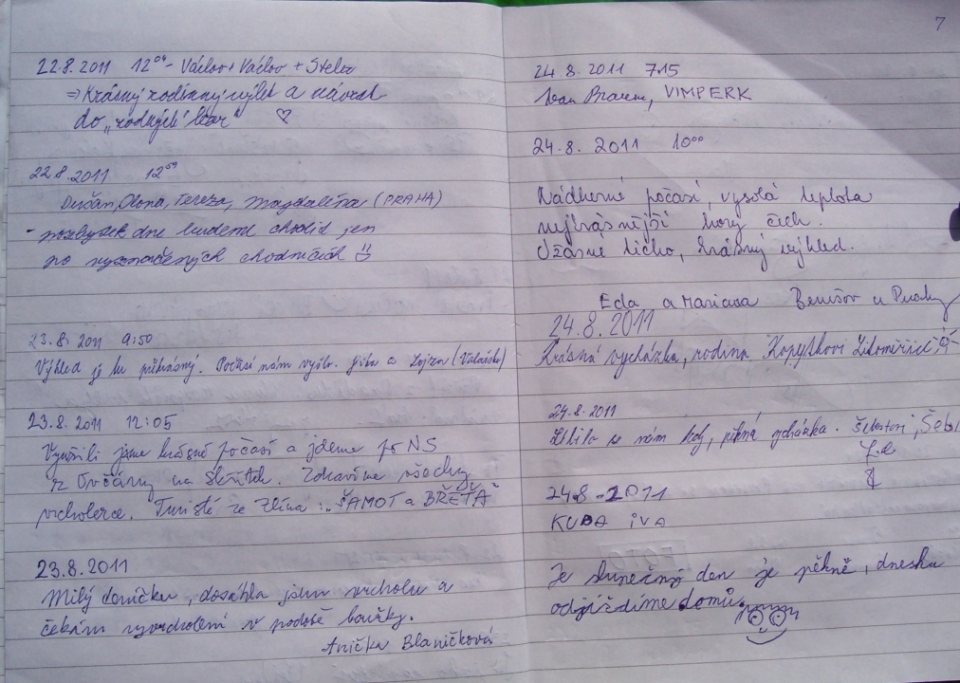 22.8.2011 12⁰⁴ - Václav + Václav + Stela
⇒ Krásný rodinný výlet a návrat
do „rodných" ♡
22.8.2011 12⁵⁹
Dušan, Olona, Tereza, Magdaléna (PRAHA)
- pozbytek dne budeme chodit jen
po vyznačených chodníčích
23.8.2011 9:50
Výhled je tu překrásný. Počasí nám vyšlo. Jitka a Lojza (Valašsko)
23.8.2011 12:05
Využili jsme krásné počasí a jdeme po NS
z na Skřítek. Zdravíme všechny
vrcholerce. Turisté ze Zlína : „ŠAMOT a BŘÉŤA"
23.8.2011
Milý deníčku, dosáhla jsem vrcholu a
čekám vyvrcholení v podobě bouřky.
Anička Blaničková
7
24.8.2011 7.15
Ivan VIMPERK
24.8.2011 10⁰⁰
Nádherné počasí, vysoká teplota
nejkrásnější hory Čech.
Úžasné ticho, krásný výhled.
Eda a Mariana Benešov u Prahy
24.8.2011
Krásná vycházka, rodina Kopeckovi Litoměřice
24.8.2011
Líbilo se nám tady, pěkná vycházka.
24.8-2011
KUBA IVA
Je slunečný den je pěkně, dneska
odjíždíme domů.